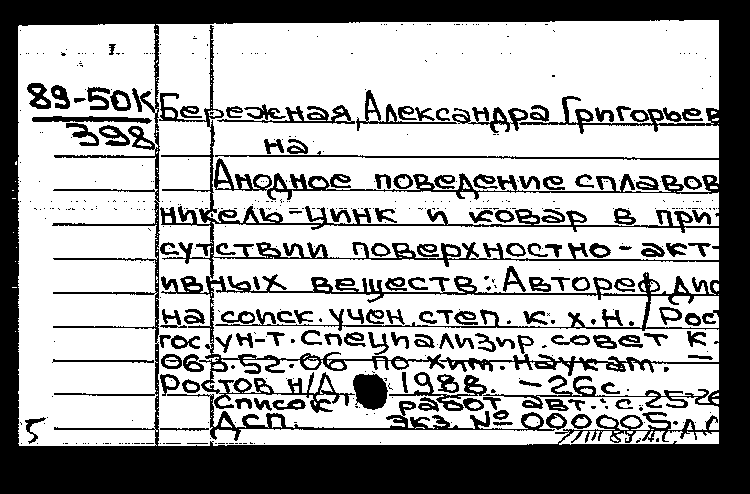 89-50К
398
Бережная, Александра Григорьев
на.
Анодное поведение сплавов
никель-цинк и ковар в при-
сутствии поверхностно-акт-
ивных веществ: Автореф. дис
на соиск. учен. степ. к. х.н. / Рост
гос. ун-т. Специализир. совет К.
063.52.06 по хим. наукам. —
Ростов н/Д 1988. - 26 с.
Список работ авт.: с. 25-26
Дсп. Экз. № 000005.
5